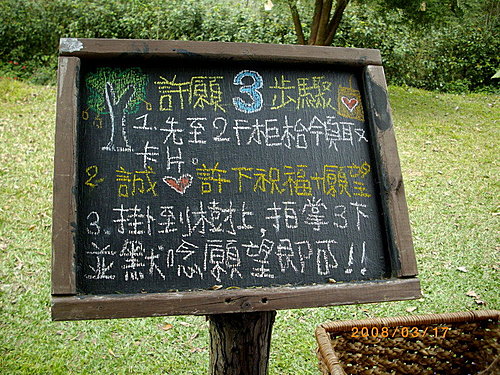 許願3步驟
1.先至2F柜枱領取
卡片。
2 誠許下祝福+願望
3.掛到樹上,拍掌3下
並默唸願望即可!!
2008/03/17